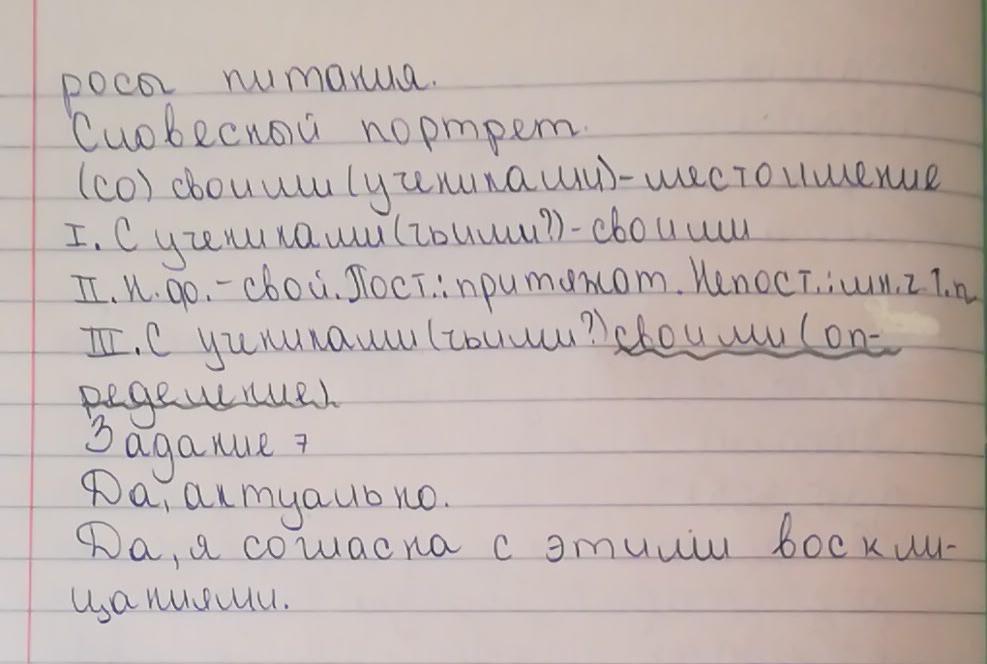 росы питания.
Словесный портрет.
(со) своими (учениками) - местоимение
I. С учениками (чьими?) - своими
II. Н.ф. - свой. Пост.: притяжат. Непост.: мн.ч. Т.п
III. С учениками (чьими?) своими (оп-
ределение)
Задание 7
Да, актуально.
Да, я согласна с этими воскли-
цаниями.